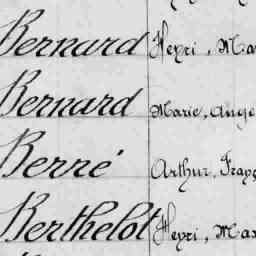 Bernard Henri, Ma
Bernard Marie, Ange
Berré Arthur, Franç
Berthelot Henri, Max